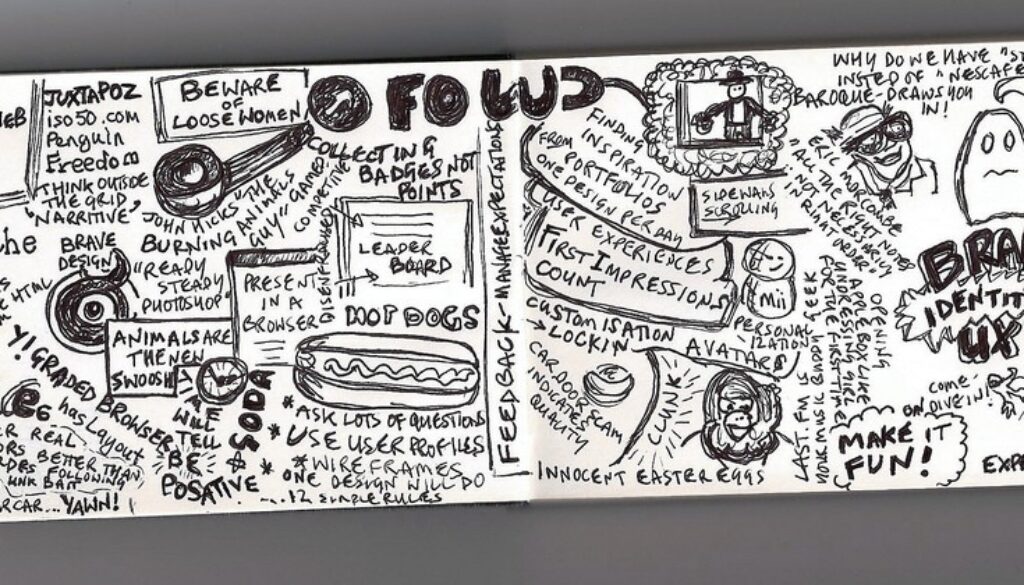 JUXTAPOZ
iso50.com
Penguin
Freedom
THINK OUTSIDE
THE GRID
"NARRITIVE"
BEWARE
OF
LOOSE WOMEN
JOHN HICKS "THE
BURNING ANIMALS
GUY"
GAMED
COMPETITIVE
COLLECTING
BADGES NOT
POINTS
LEADER
BOARD
he
BRAVE
DESIGN
HTML
"READY
STEADY
PHOTOSHOP"
PRESENT
IN A
BROWSER
DISENFRANCHISED
HOT DOGS
ANIMALS ARE
THE NEW
SWOOSH
Y! GRADED BROWSER
hasLayout
REAL
BETTER THAN
FOLLOWING
YAWN!
TIME
WILL
TELL
SODA
BE
POSATIVE
* ASK LOTS OF QUESTIONS
* USE USER PROFILES
* WIREFRAMES
ONE DESIGN WILL DO
12 SIMPLE RULES
FEEDBACK - MANAGE EXPECTATIONS
FINDING
INSPIRATION
FROM PORTFOLIOS
ONE DESIGN PER DAY
USER EXPERIENCES
FIRST IMPRESSIONS
COUNT
CUSTOMISATION
→ LOCK IN
SIDEWAYS
SCROLLING
Mii
PERSONAL
IZATION
AVATARS
CAR DOOR SLAM
INDICATES
QUALITY
CLUNK
INNOCENT EASTER EGGS
WHY DO WE HAVE
INSTED OF "NESCAFE
BAROQUE - DRAWS YOU
IN!
ERIC MORCOMBE
"ALL THE RIGHT NOTES
NOT NECESSARILY
IN RIGHT ORDER"
OPENING
APPLE BOX LIKE
UNDRESSING GIRL
FOR THE FIRST TIME
LAST.FM IS
YOUR MUSIC BUDDY GEEK
BRA
IDENTIT
UX
COME
ON DIVE IN!
MAKE IT
FUN!
EXPE